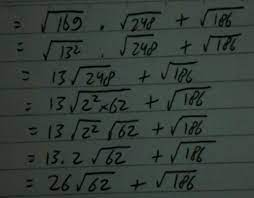 = √169 . √248 + √186
= √13² . √248 + √186
= 13 √248 + √186
= 13 √2² × 62 + √186
= 13 √2² √62 + √186
= 13 . 2 √62 + √186
= 26 √62 + √186